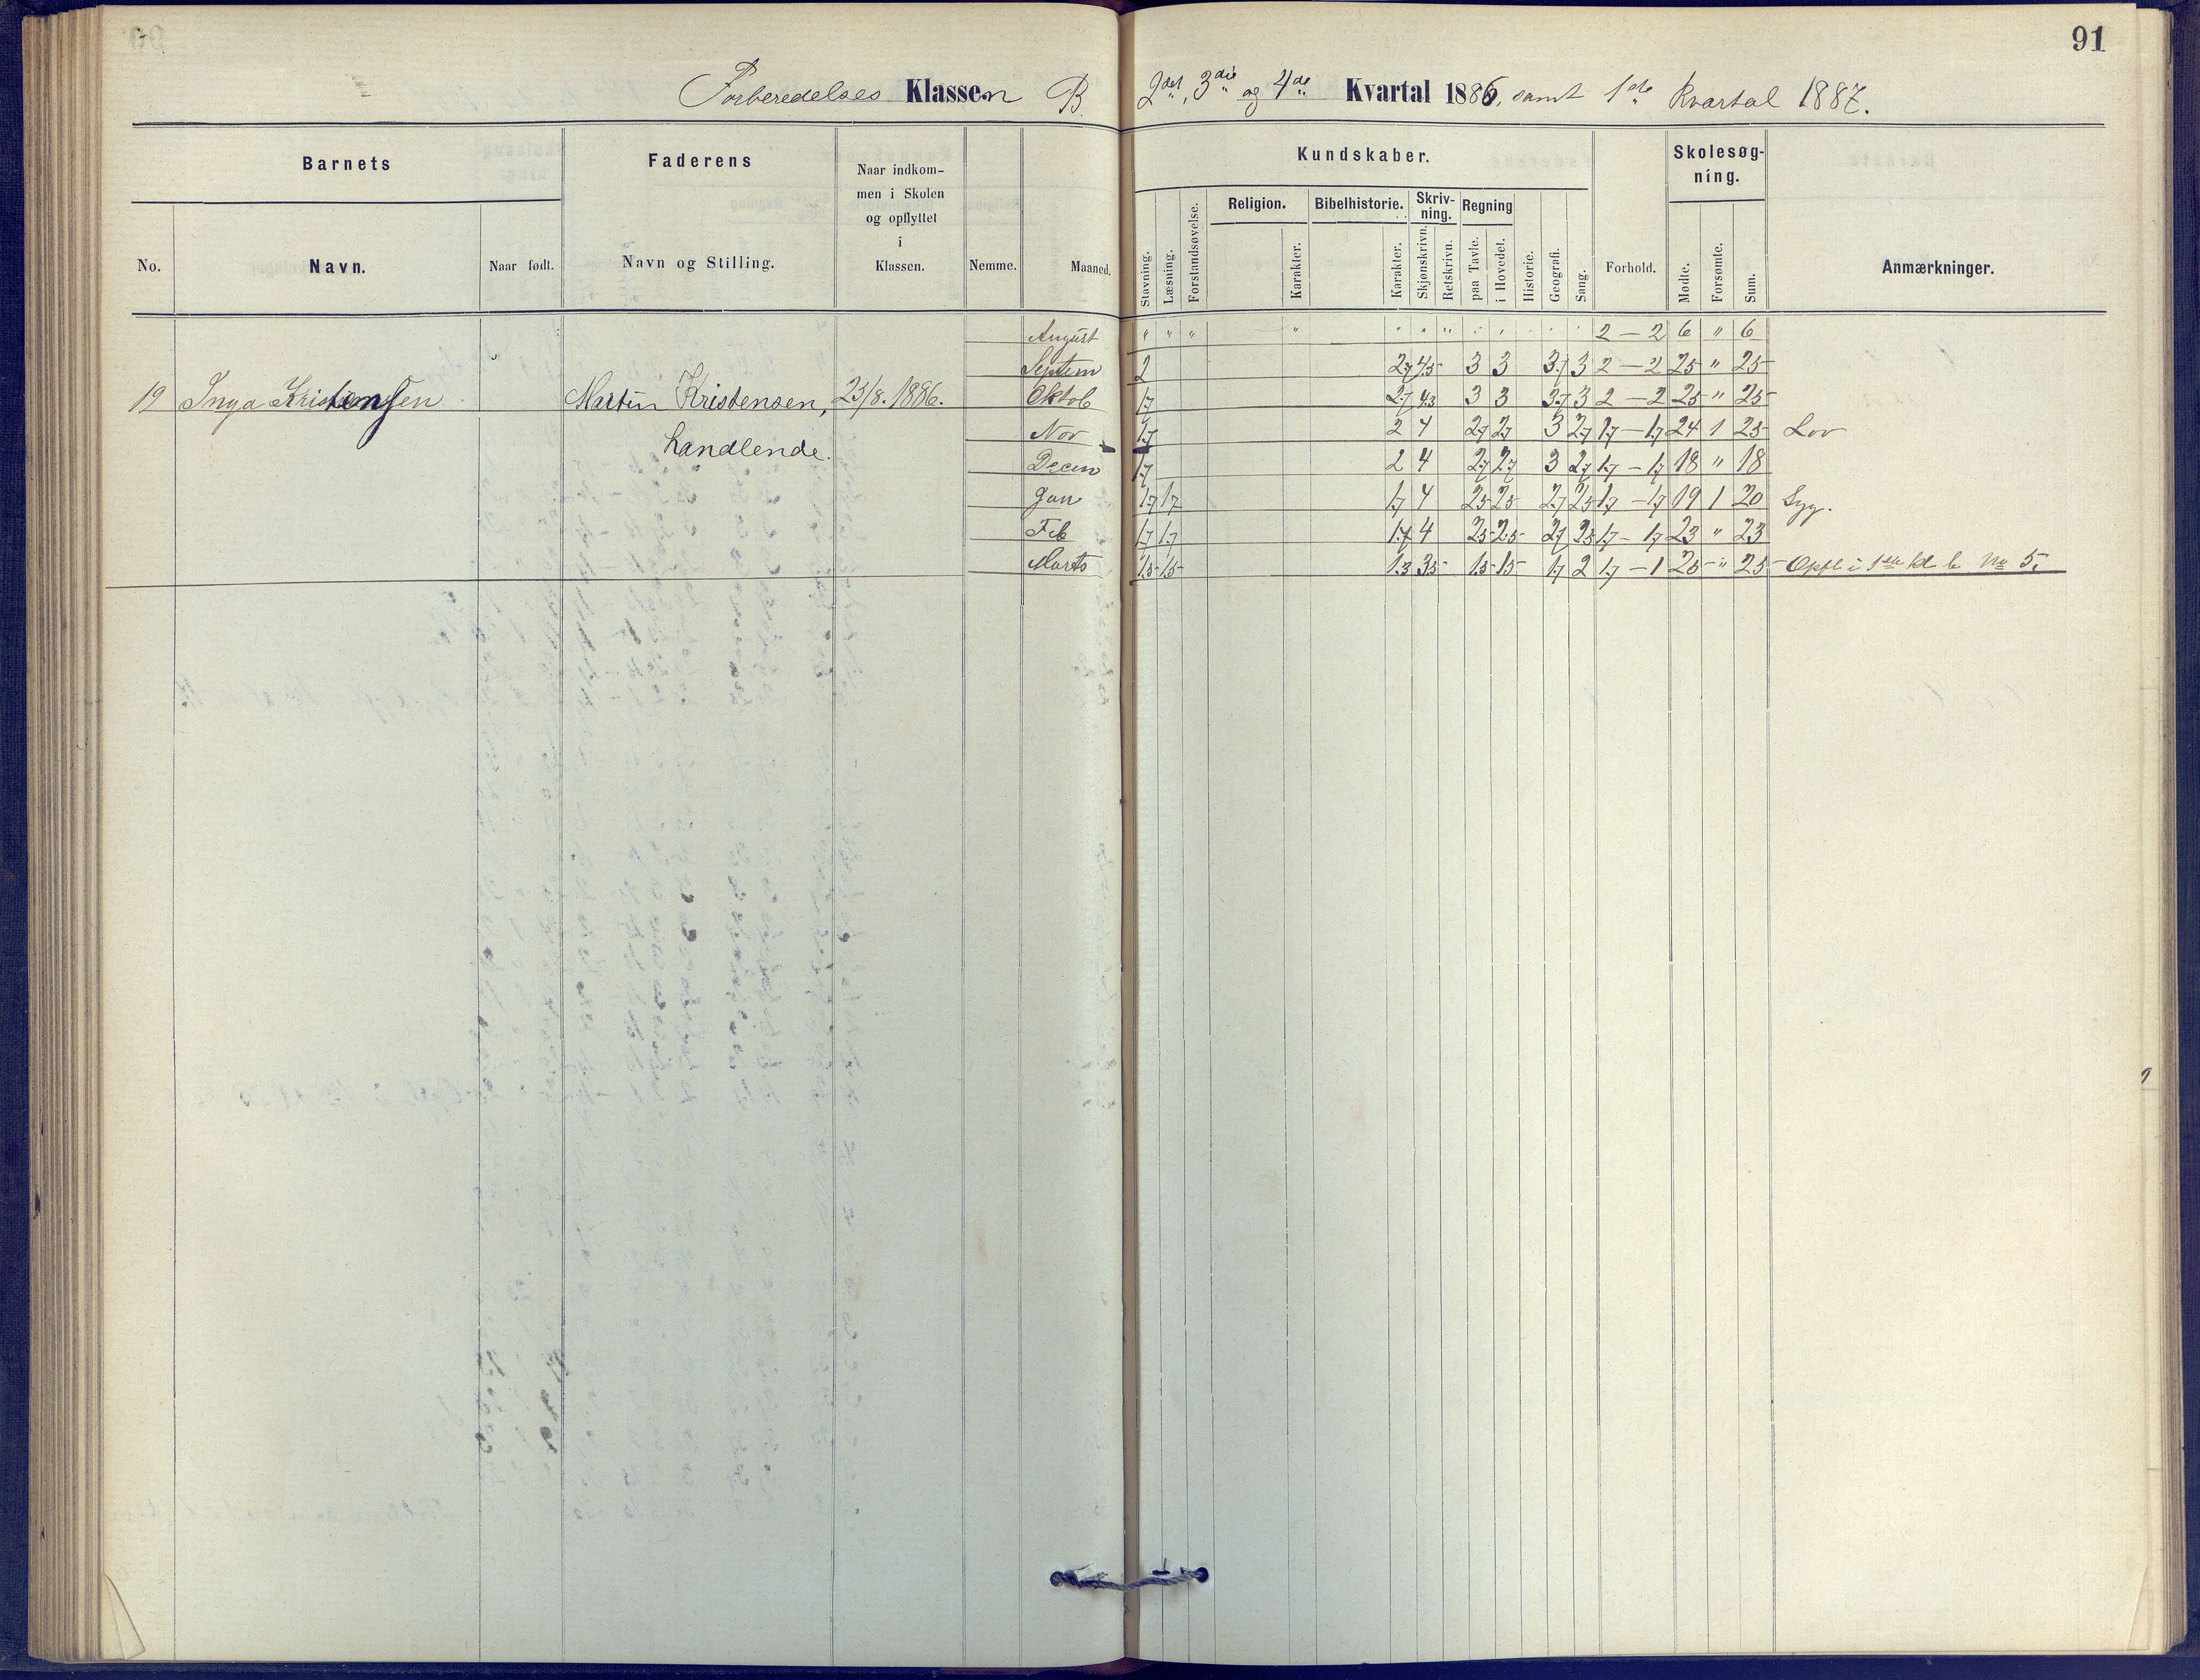 91
Forberedelses Klassen B. 2det, 3die og 4de Kvartal 1886, samt 1ste Kvartal 1887.
Barnets Faderens Naar indkommen i Skolen og opflyttet i Klassen. Kundskaber. Skolesøgning.
No. Navn. Naar født. Navn og Stilling. Nemme. Maaned. Stavning. Læsning. Forstandsøvelse. Religion. Karakter. Bibelhistorie. Karakter. Skrivning. Skjønskrivn. Retskrivn. Regning paa Tavle. i Hovedet. Historie. Geografi. Sang. Forhold. Mødte. Forsømte. Sum. Anmærkninger.
August " " " " " " " " " 2 — 2 6 " 6
Septem 2 2,7 4,5 3 3 3,7 3 2 — 2 25 " 25
19 Inga Kristensen Martin Kristensen, 23/8. 1886. Oktob 1,7 2,7 4,3 3 3 3,7 3 2 — 2 25 " 25
handlende. Nov 1,7 2 4 2,7 2,7 3 2,7 1,7 — 1,7 24 1 25 Lov
Decem 1,7 2 4 2,7 2,7 3 2,7 1,7 — 1,7 18 " 18
Jan 1,7 1,7 1,7 4 2,5 2,5 2,7 2,5 1,7 — 1,7 19 1 20 Syg.
Feb 1,7 1,7 1,7 4 2,5 2,5 2,7 2,5 1,7 — 1,7 23 " 23
Marts 1,5 1,5 1,3 3,5 1,5 1,5 1,7 2 1,7 — 1 25 " 25 Opfl i 1ste kl b No 5.